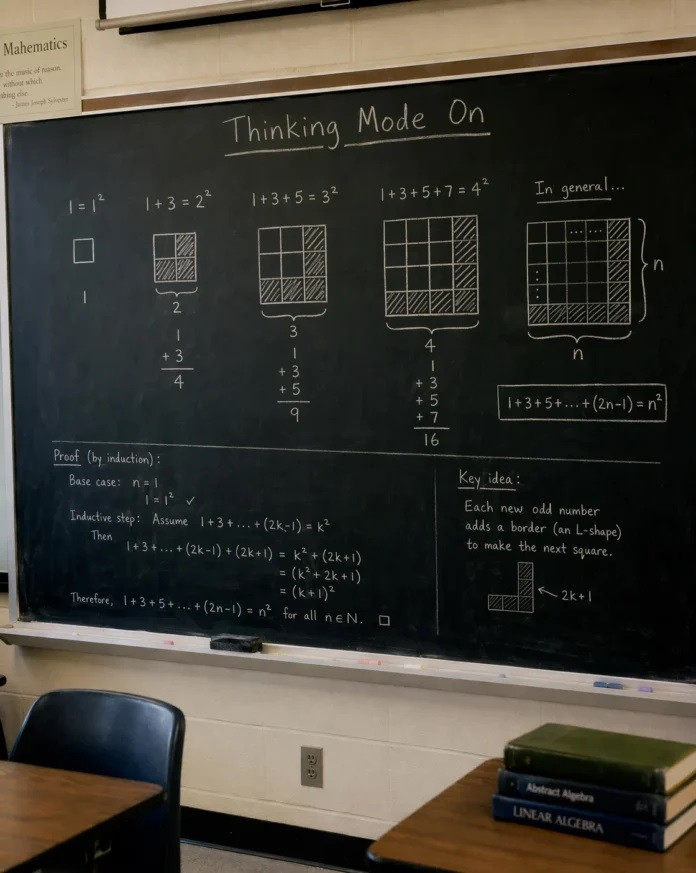 Mahematics
e the music of reason.
without which
thing else.
James Joseph Sylvester
Thinking Mode On
1 = 1²
1
1 + 3 = 2²
2
1
+ 3
4
1 + 3 + 5 = 3²
3
1
+ 3
+ 5
9
1 + 3 + 5 + 7 = 4²
4
1
+ 3
+ 5
+ 7
16
In general...
n
n
1 + 3 + 5 + ... + (2n-1) = n²
Proof (by induction):
Base case: n = 1
1 = 1² ✓
Inductive step: Assume 1 + 3 + ... + (2k-1) = k²
Then
1 + 3 + ... + (2k-1) + (2k+1) = k² + (2k+1)
= (k² + 2k + 1)
= (k+1)²
Therefore, 1 + 3 + 5 + ... + (2n-1) = n² for all n ∈ N. □
Key idea:
Each new odd number
adds a border (an L-shape)
to make the next square.
2k+1
Abstract Algebra
LINEAR ALGEBRA